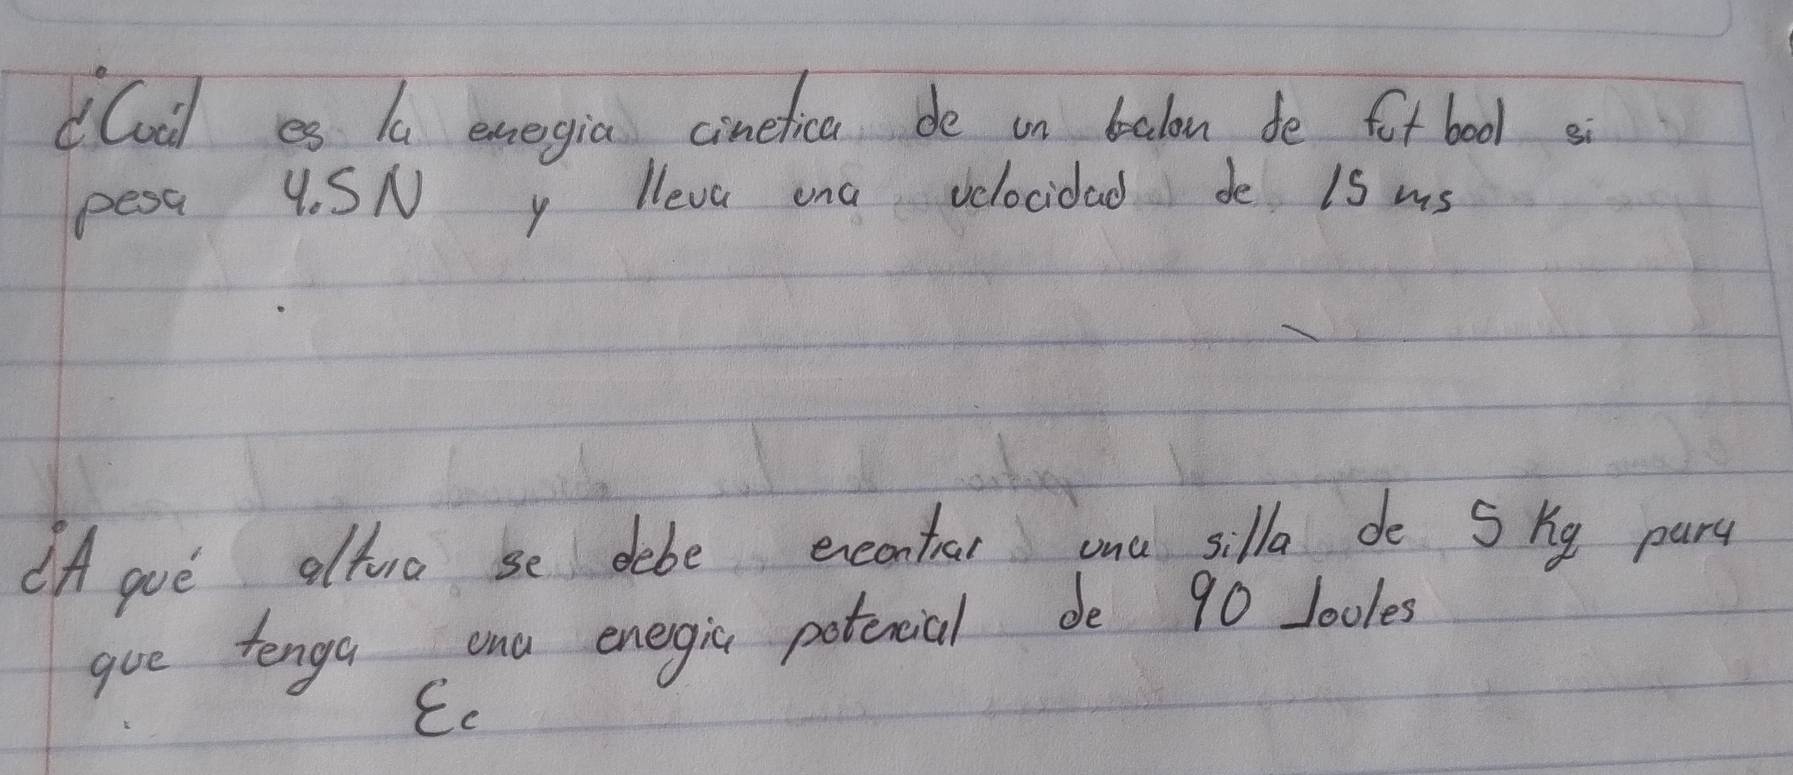 ¿Cuál es la energia cinetica de un balon de fut bool si
pesa 4.5N y lleva una velocidad de 15 ms
¿A qué altura se debe encontrar una silla de 5 Kg para
que tenga una energia potencial de 90 Joules
Ec